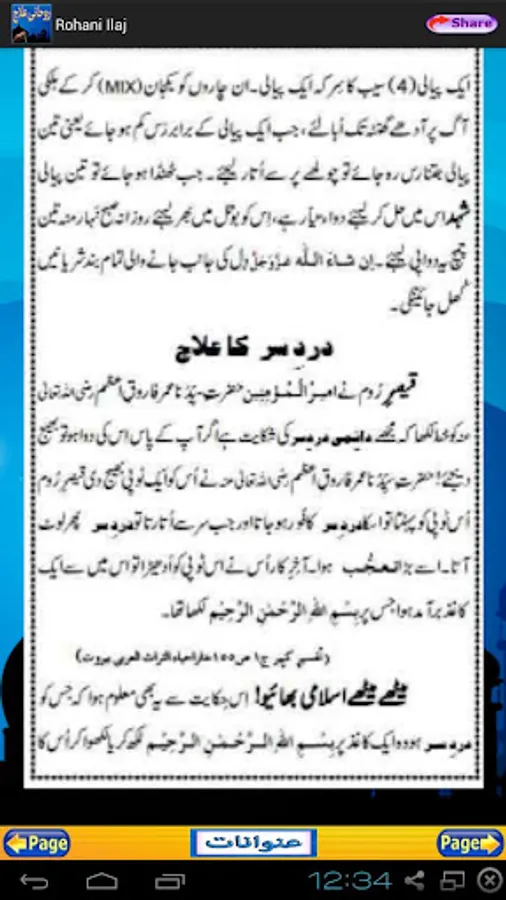 روحانی علاج
Rohani Ilaj
Share
ایک پیالی (4) سیب کا سِرکہ ایک پیالی۔ ان چاروں کو یکجان (MIX) کر کے ہلکی
آگ پر آدھے گھنٹہ تک اُبالئے، جب ایک پیالی کے برابر رَس کم ہو جائے یعنی تین
پیالی جتنا رس رہ جائے تو چولھے پر سے اُتار لیجئے۔ جب ٹھنڈا ہو جائے تو تین پیالی
شہد اس میں حل کر لیجئے دواء تیار ہے، اِس کو بوتل میں بھر لیجئے روزانہ صبح نہار منہ تین
چمچ یہ دوا پی لیجئے۔ اِن شاءَ اللہ عَزَّوَجَلَّ دِل کی جانب جانے والی تمام بند شریانیں
کُھل جائینگی۔
دردِ سر کا علاج
قیصرِ رُوم نے امیرُ الْمُؤمِنِین حضرتِ سیِّدُنا عمر فاروقِ اعظم رضی اللہ تعالٰی
عنہ کو خط لکھا کہ مجھے دائمی دردِسر کی شکایت ہے اگر آپ کے پاس اِس کی دوا ہو تو بھیج
دیجئے! حضرتِ سیِّدُنا عمر فاروقِ اعظم رضی اللہ تعالٰی عنہ نے اُس کو ایک ٹوپی بھیج دی قیصرِ رُوم
اُس ٹوپی کو پہنتا تو اسکا دردِسر کافُور ہو جاتا اور جب سر سے اُتارتا تو دردِسر پھر لوٹ
آتا۔ اسے بڑا تَعَجُّب ہوا۔ آخِر کار اُس نے اس ٹوپی کو اُدھیڑا تو اس میں سے ایک
کاغذ برآمد ہوا جس پر بِسْمِ اللہِ الرَّحْمٰنِ الرَّحِیْمِ لکھا تھا۔
(تفسیرِ کبیر ج۱ ص۱۵۵ داراحیاء التراث العربی بیروت)
میٹھے میٹھے اسلامی بھائیو! اِس حِکایت سے یہ بھی معلوم ہوا کہ جس کو
دردِسر ہو وہ ایک کاغذ پر بِسْمِ اللہِ الرَّحْمٰنِ الرَّحِیْمِ لکھ کر یا لکھوا کر اُس کا
Page
عنوانات
Page
12:34